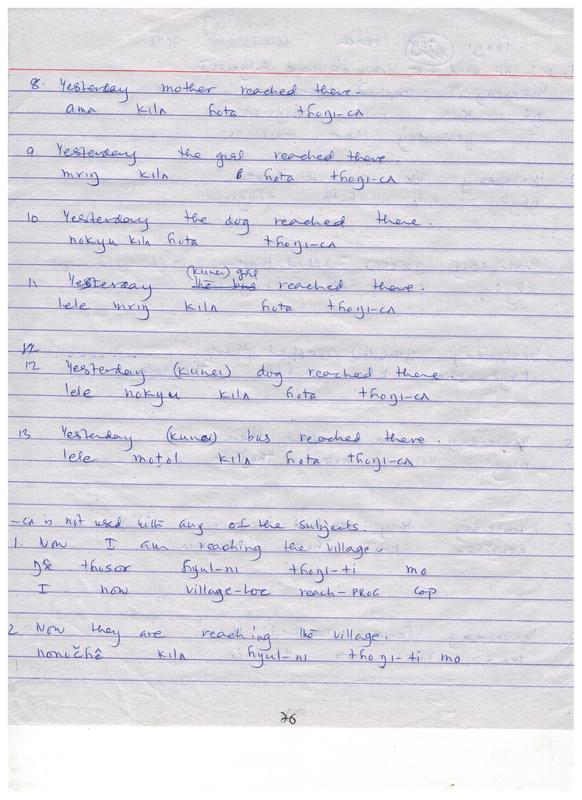 8. Yesterday mother reached there.
ama kilʌ ɦota thoŋɪ-cʌ
9 Yesterday the girl reached there.
mriŋ kilʌ ɦota thoŋɪ-cʌ
10 Yesterday the dog reached there.
nokyu kilʌ ɦota thoŋɪ-cʌ
(kunei) girl
11 Yesterday the bus reached there.
lele mriŋ kilʌ ɦota thoŋɪ-cʌ
12
12 Yesterday (kunei) dog reached there.
lele nokyu kilʌ ɦota thoŋɪ-cʌ
13 Yesterday (kunei) bus reached there.
lele moṭol kilʌ ɦota thoŋɪ-cʌ
-cʌ is not used with any of the subjects.
1. Now I am reaching the village.
thosor ɦyul-nɪ thoŋɪ-ti mo
I now village-LOC reach-PROG cop
2 Now they are reaching the village.
nonočɦê kilʌ ɦyul-nɪ thoŋɪ-ti mo
76